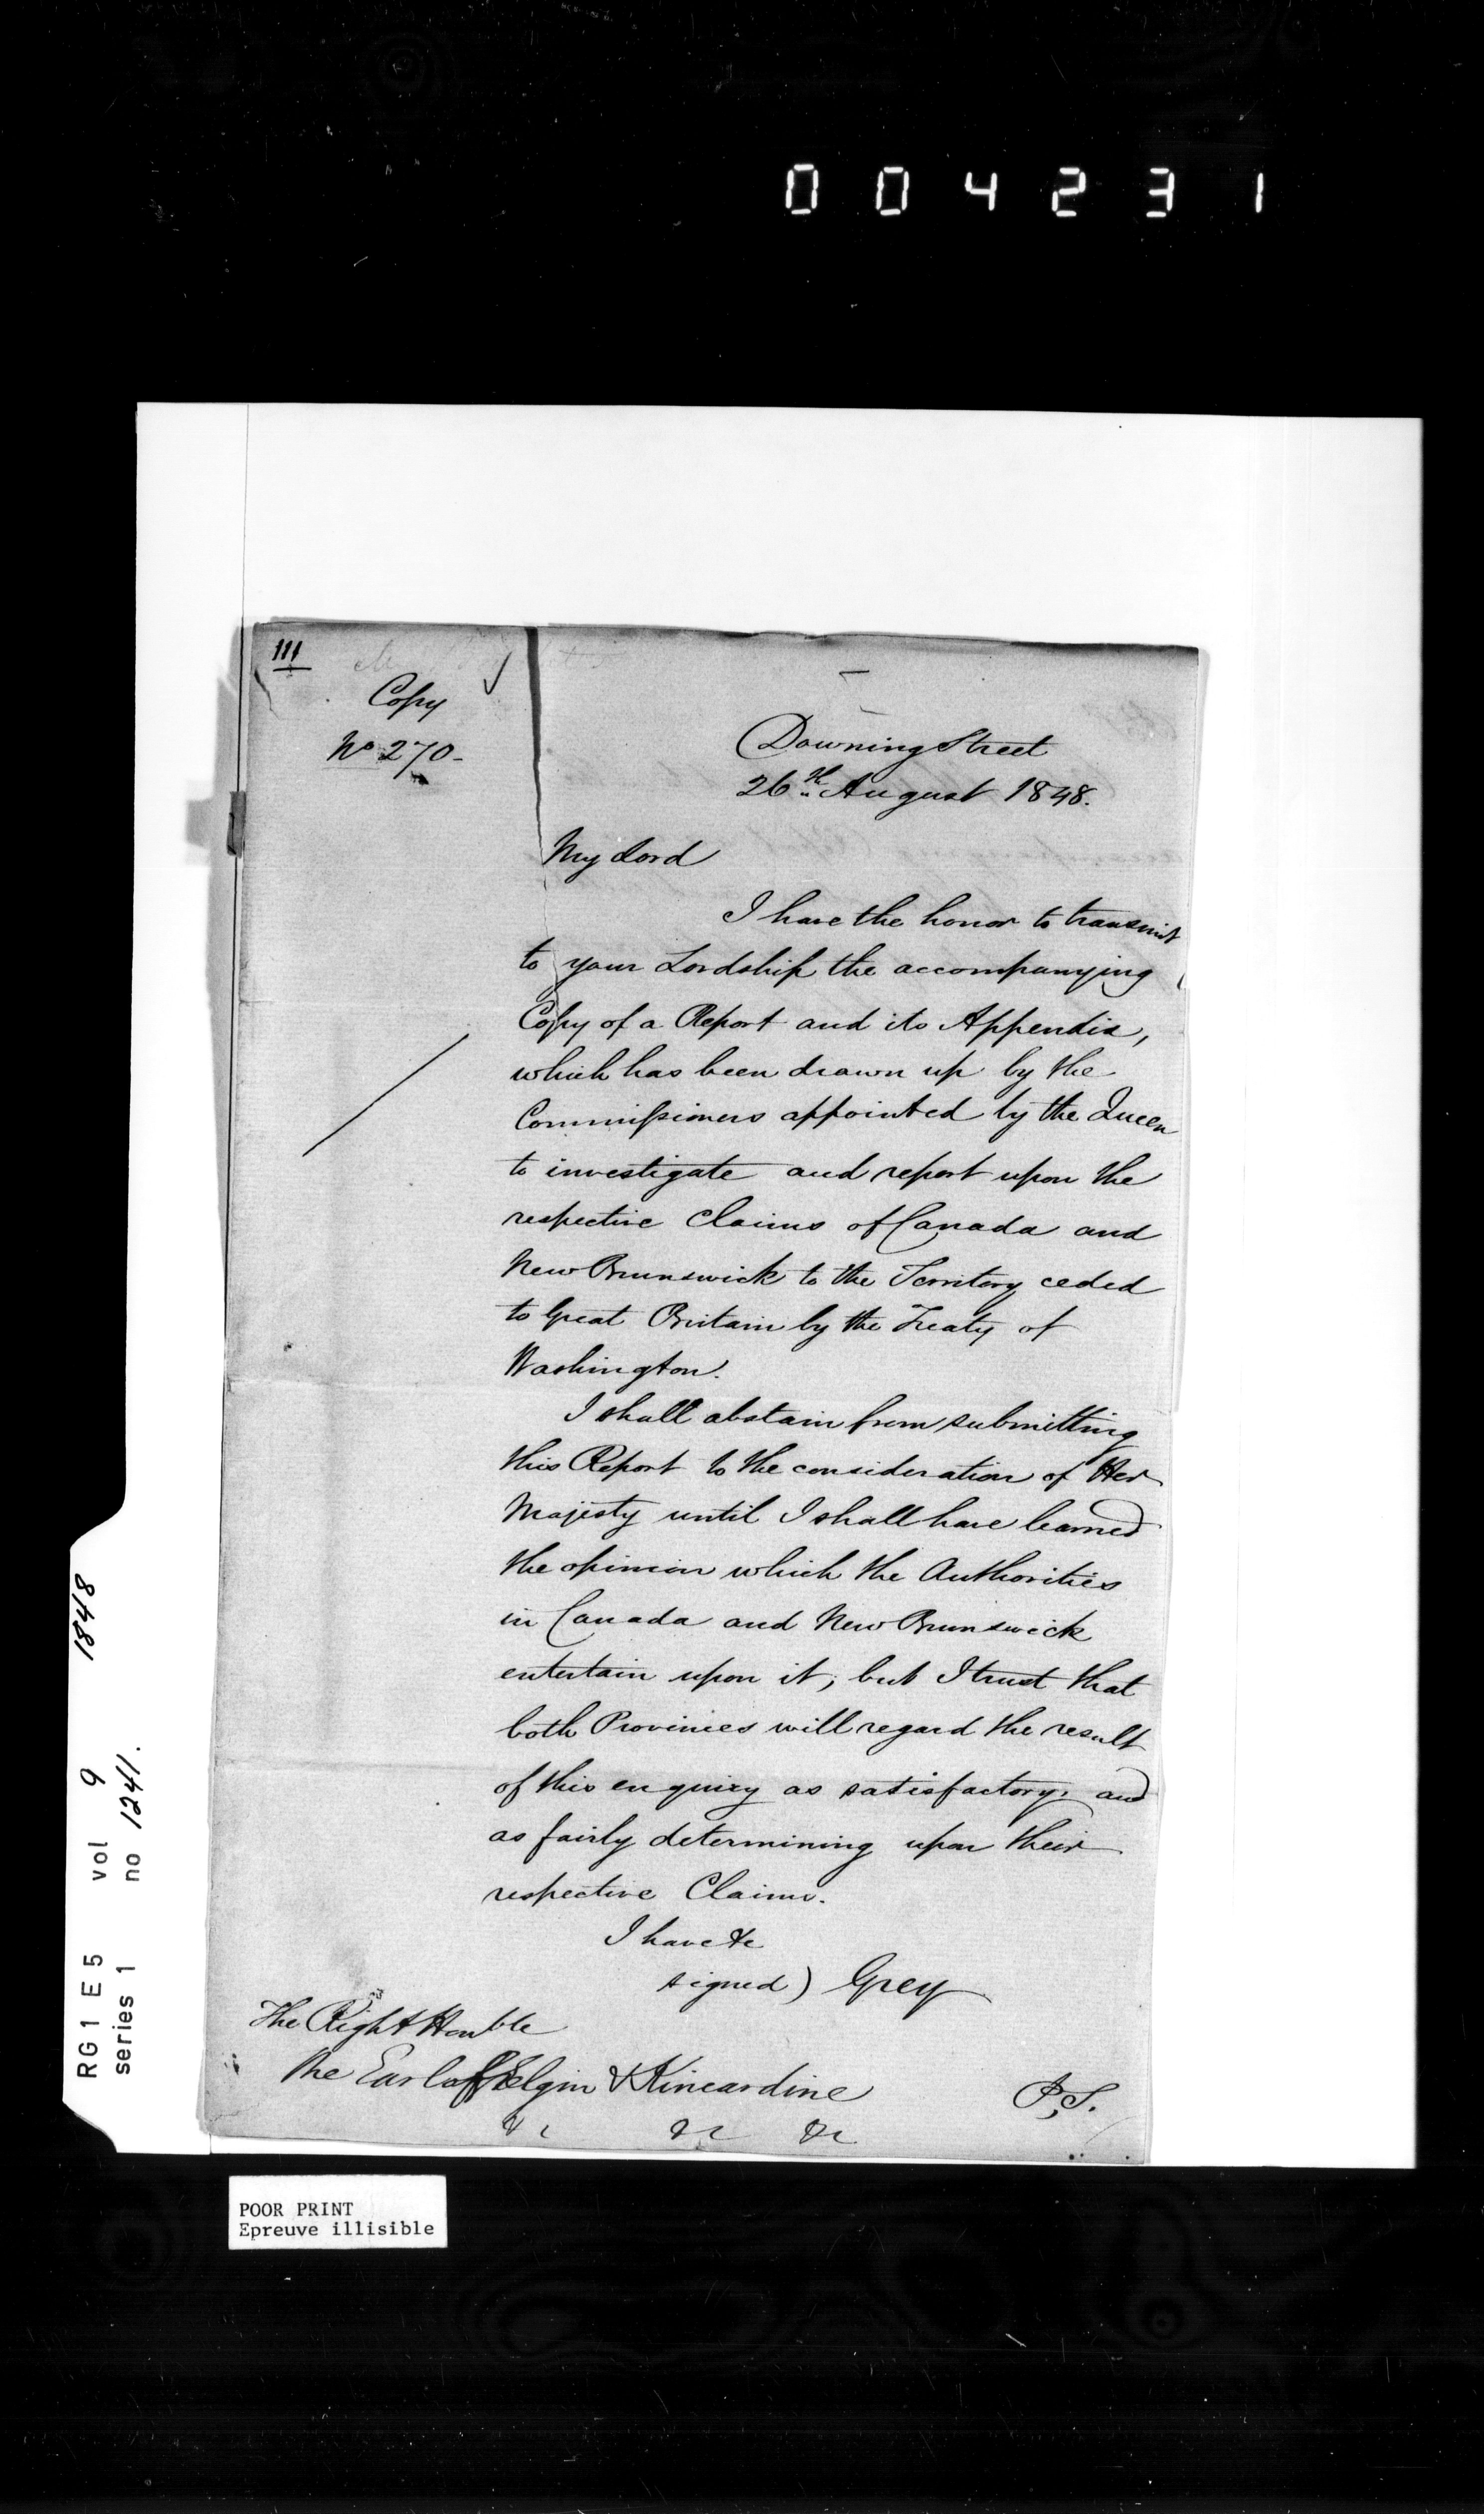 004231
111
Copy
No 270-
Downing Street
26th August 1848.
My Lord
I have the honor to transmit
to your Lordship the accompanying
Copy of a Report and its Appendix,
which has been drawn up by the
Commissioners appointed by the Queen
to investigate and report upon the
respective Claims of Canada and
New Brunswick to the Territory ceded
to Great Britain by the Treaty of
Washington.
I shall abstain from submitting
this Report to the consideration of Her
Majesty until I shall have learned
the opinion which the Authorities
in Canada and New Brunswick
entertain upon it; but I trust that
both Provinces will regard the result
of this enquiry as satisfactory, and
as fairly determining upon their
respective Claims.
I have &c
signed) Grey
The Right Honble
The Earl of Elgin & Kincardine
&c &c &c
P.S.
RG1 E5 vol 9 1848
series 1 no 1241.
POOR PRINT
Epreuve illisible